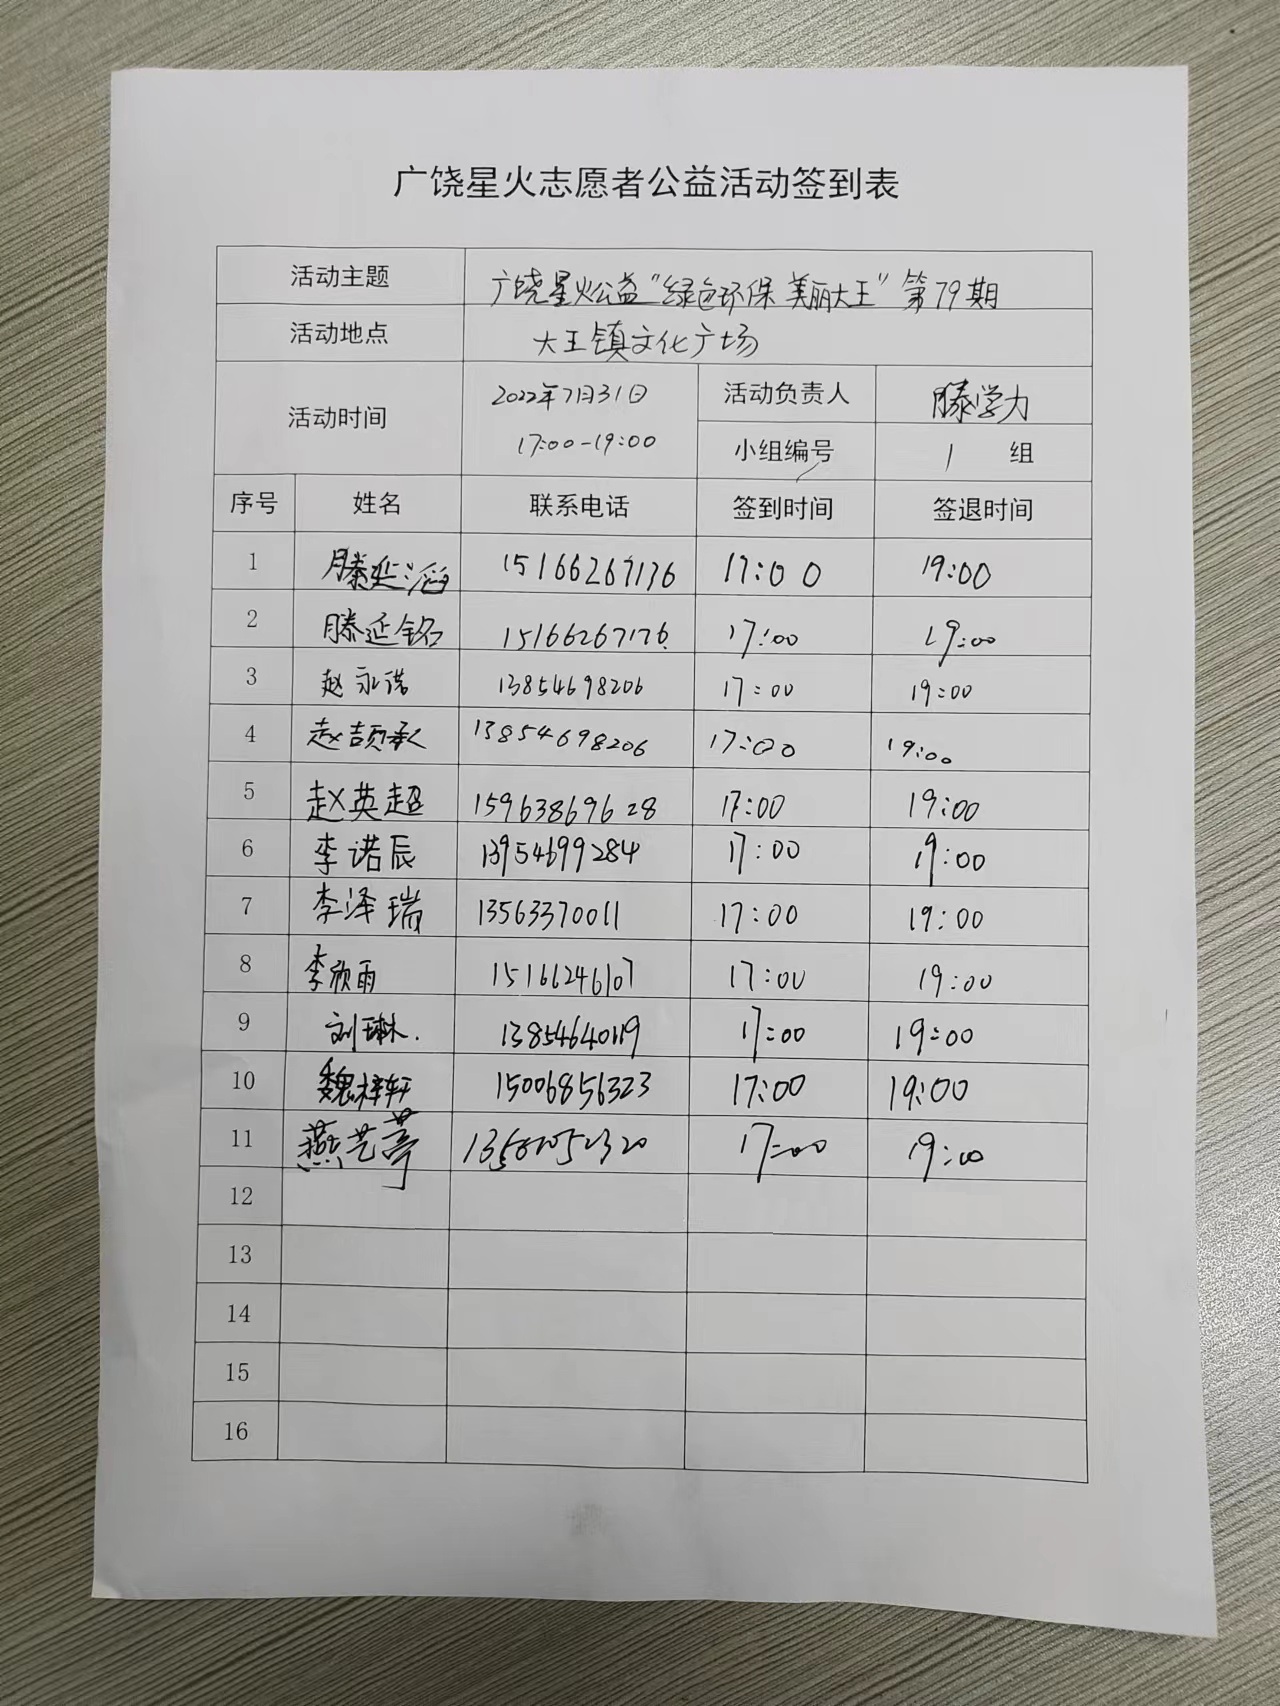 广饶星火志愿者公益活动签到表
活动主题 广饶星火公益“绿色环保 美丽大王”第79期
活动地点 大王镇文化广场
活动时间 2022年7月31日 17:00-19:00 活动负责人 滕学力
小组编号 1 组
序号 姓名 联系电话 签到时间 签退时间
1 滕延滔 15166267176 17:00 19:00
2 滕延铭 15166267176 17:00 19:00
3 赵永诺 13854698206 17:00 19:00
4 赵颉承 13854698206 17:00 19:00
5 赵英超 15963869628 17:00 19:00
6 李诺辰 13954699284 17:00 19:00
7 李泽瑞 13563370011 17:00 19:00
8 李欣雨 15166246107 17:00 19:00
9 刘琳. 13854640119 17:00 19:00
10 魏梓轩 15006856323 17:00 19:00
11 燕艺 17:00 19:00
12
13
14
15
16